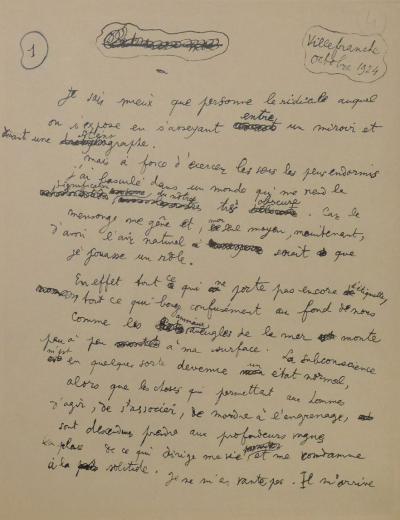 1
Villefranche
octobre 1924
Je sais mieux que personne le ridicule auquel
on s'expose en s'asseyant entre un miroir et
devant une
mais à force d'exercer les sens les plus endormis
j'ai basculé dans un monde qui me rend la
signification du nôtre très obscure. Car le
mensonge me gêne et, moyen, maintenant,
d'avoir l'air naturel serait que
je jouasse un rôle.
En effet tout ce qui ne porte pas encore d'étiquette,
tout ce qui bouge confusément au fond de nous
comme les animaux aveugles de la mer monte
peu à peu à ma surface. La subconscience
m'est en quelque sorte devenue un état normal,
alors que les choses qui permettent aux hommes
d'agir, de s'associer, de mordre à l'engrenage,
sont descendues prendre aux profondeurs
la place de ce qui dirige ma vie et me condamne
à la solitude. Je ne m'en vante pas. Il m'arrive